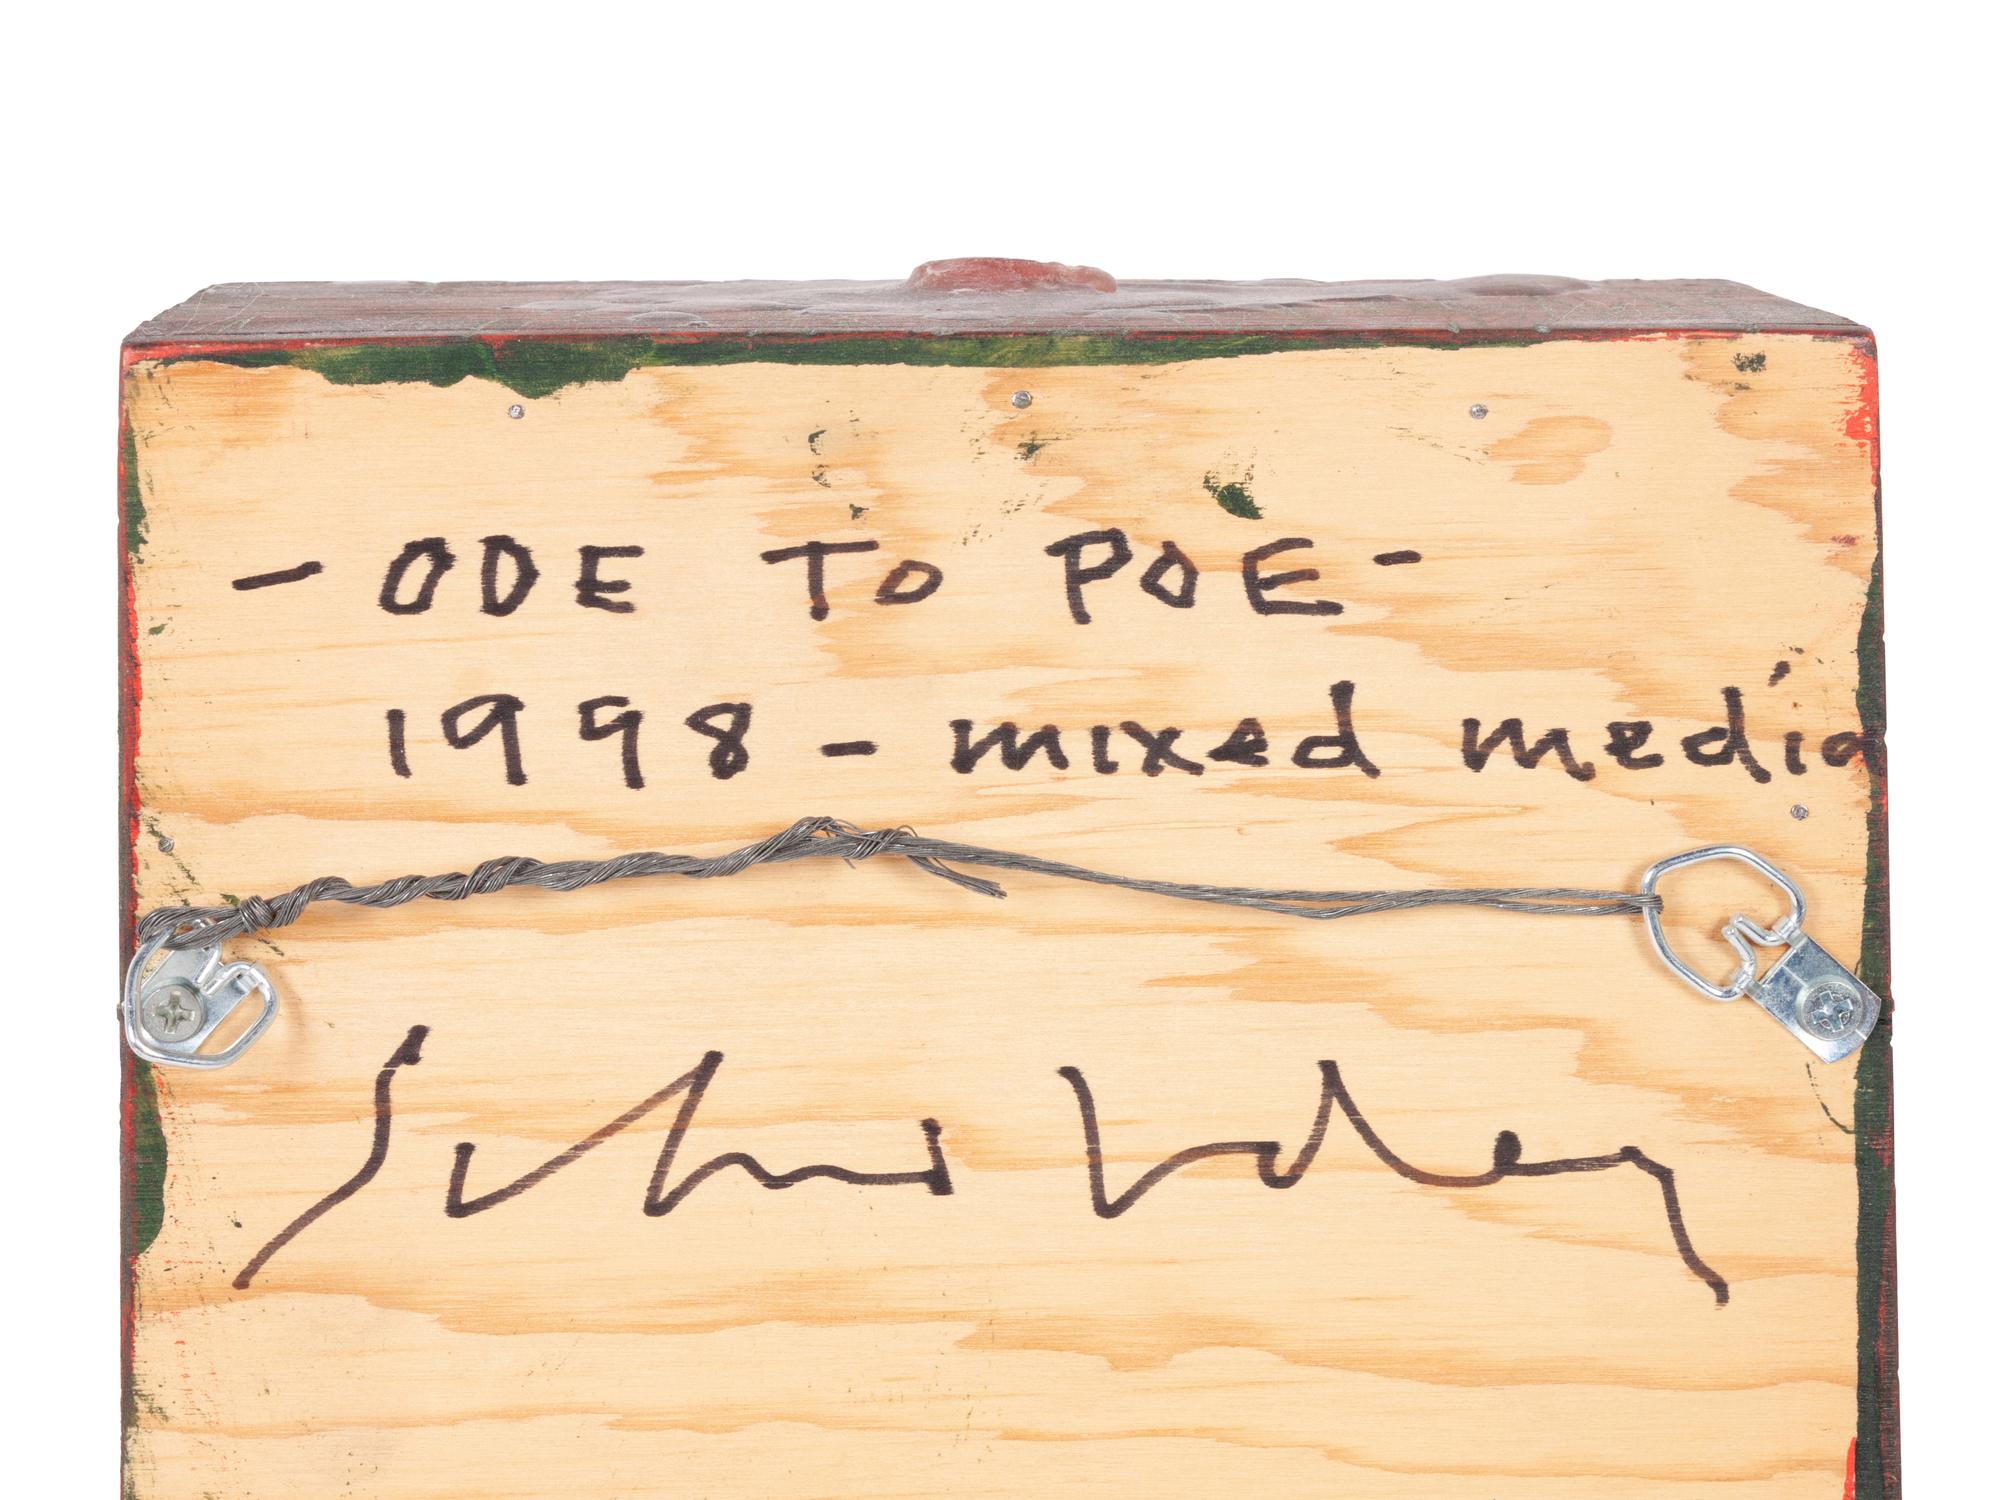 - ODE TO POE -
1998 - mixed media